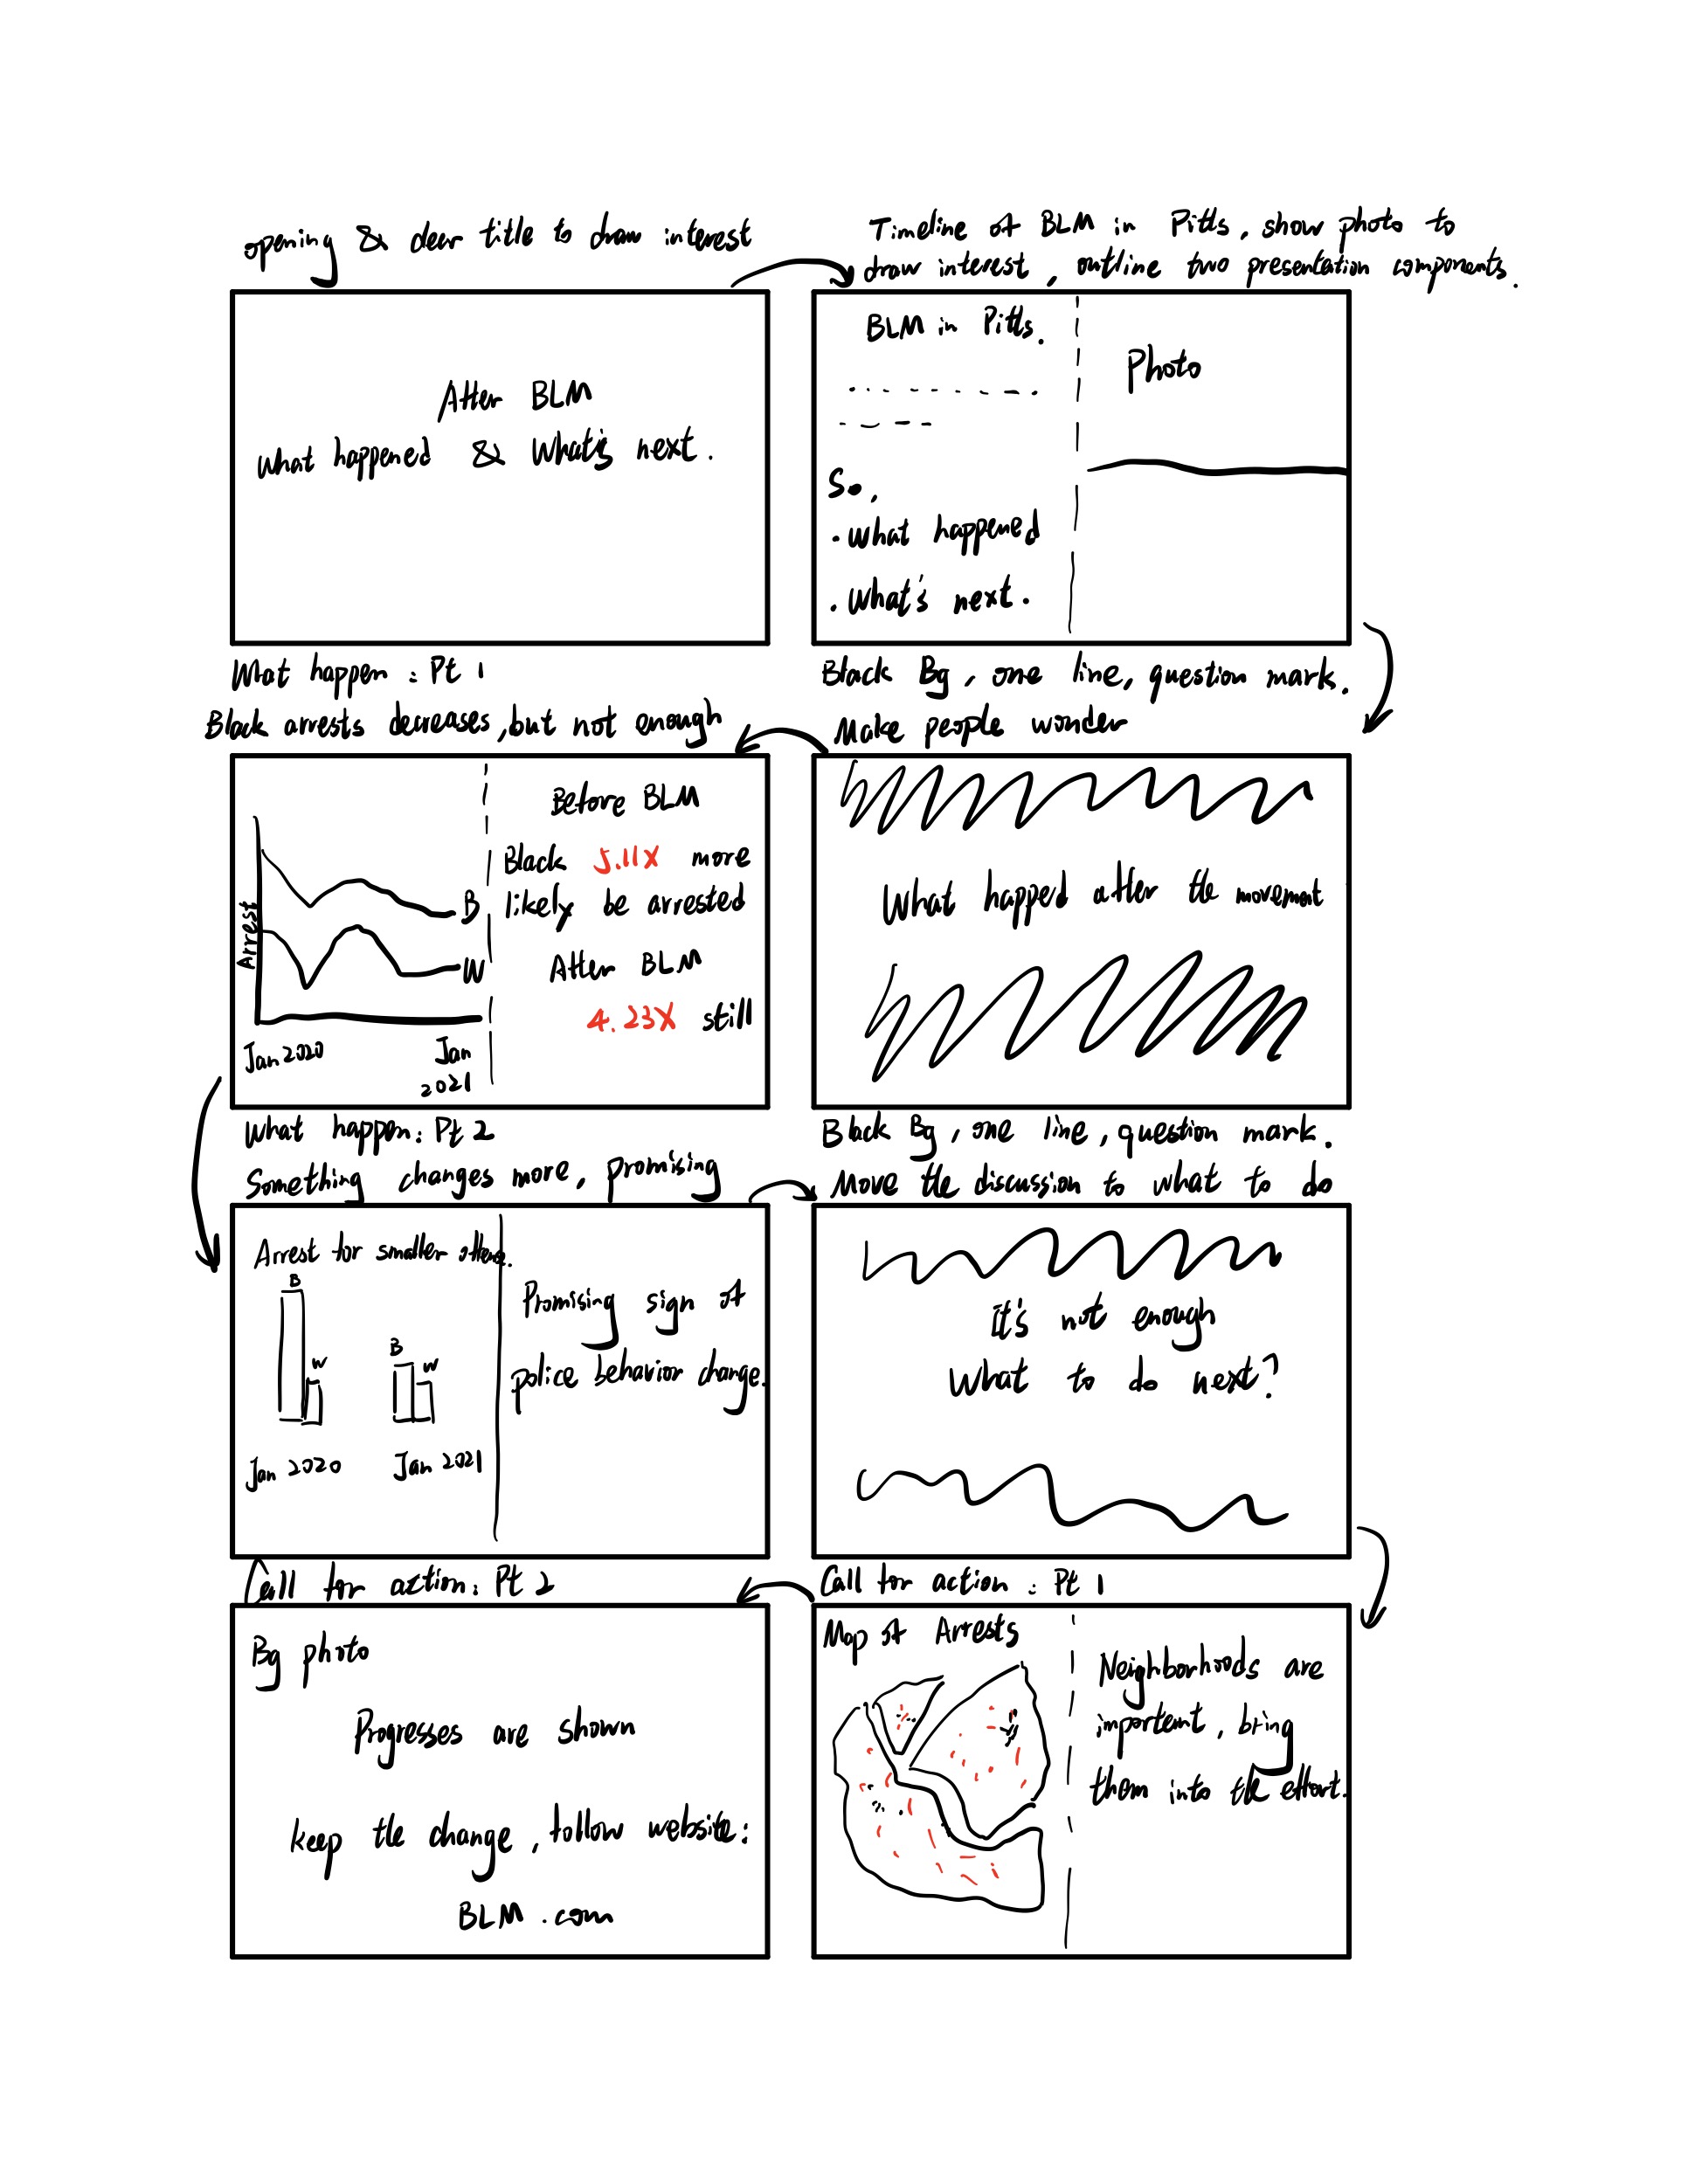 opening & clear title to draw interest
After BLM
What happened & What's next.
Timeline of BLM in Pitts, show photo to
draw interest, outline two presentation components.
BLM in Pitts.
Photo
So,
· What happened
· What's next.
Black Bg, one line, question mark.
Make people wonder
What happed after the movement
What happen: Pt 1
Black arrests decreases, but not enough
Arrest
B
W
Jan 2020
Jan
2021
Before BLM
Black 5.11X more
likely be arrested
After BLM
4.23X still
What happen: Pt 2
Something changes more, promising
Arrest for smaller offense.
B
W
B
W
Jan 2020
Jan 2021
Promising sign of
police behavior change.
Black Bg, one line, question mark.
Move the discussion to what to do
It's not enough
What to do next?
Call for action: Pt 1
Map of Arrests
Neighborhoods are
important, bring
them into the effort.
Call for action: Pt 2
Bg photo
Progresses are shown
keep the change, follow website:
BLM.com